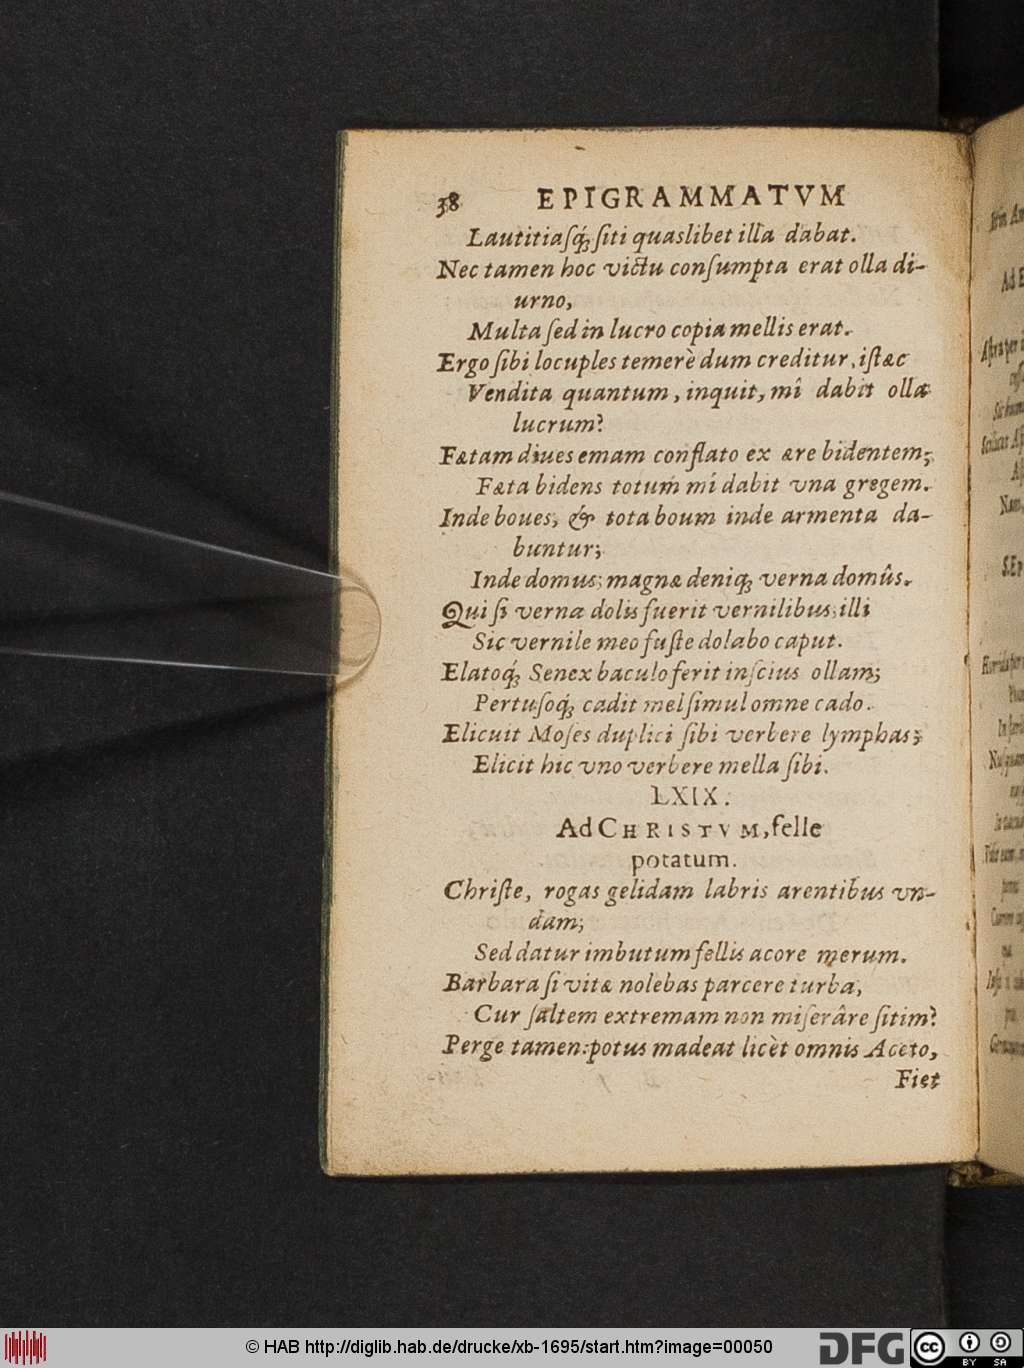 38 EPIGRAMMATVM
Lautitiaſq́ꝫ ſiti quaslibet illa dabat.
Nec tamen hoc victu conſumpta erat olla di-
urno,
Multa ſed in lucro copia mellis erat.
Ergo ſibi locuples temerè dum creditur, iſtæc
Vendita quantum, inquit, mî dabit olla
lucrum?
Fætam diues emam conflato ex ære bidentem;
Fæta bidens totum mî dabit vna gregem.
Inde boues, & tota boum inde armenta da-
buntur;
Inde domus; magnæ deniqꝫ verna domûs.
Qui ſi verna dolis fuerit vernilibus, illi
Sic vernile meo fuſte dolabo caput.
Elatoq́ꝫ Senex baculo ferit inſcius ollam;
Pertuſoq́ꝫ cadit mel ſimul omne cado.
Elicuit Moſes duplici ſibi verbere lymphas;
Elicit hic vno verbere mella ſibi.
LXIX.
Ad CHRISTVM, felle
potatum.
Chriſte, rogas gelidam labris arentibus vn-
dam;
Sed datur imbutum fellis acore merum.
Barbara ſi vitæ nolebas parcere turba,
Cur ſaltem extremam non miſerâre ſitim?
Perge tamen: potus madeat licèt omnis Aceto,
Fiet
© HAB http://diglib.hab.de/drucke/xb-1695/start.htm?image=00050
DFG
cc BY SA